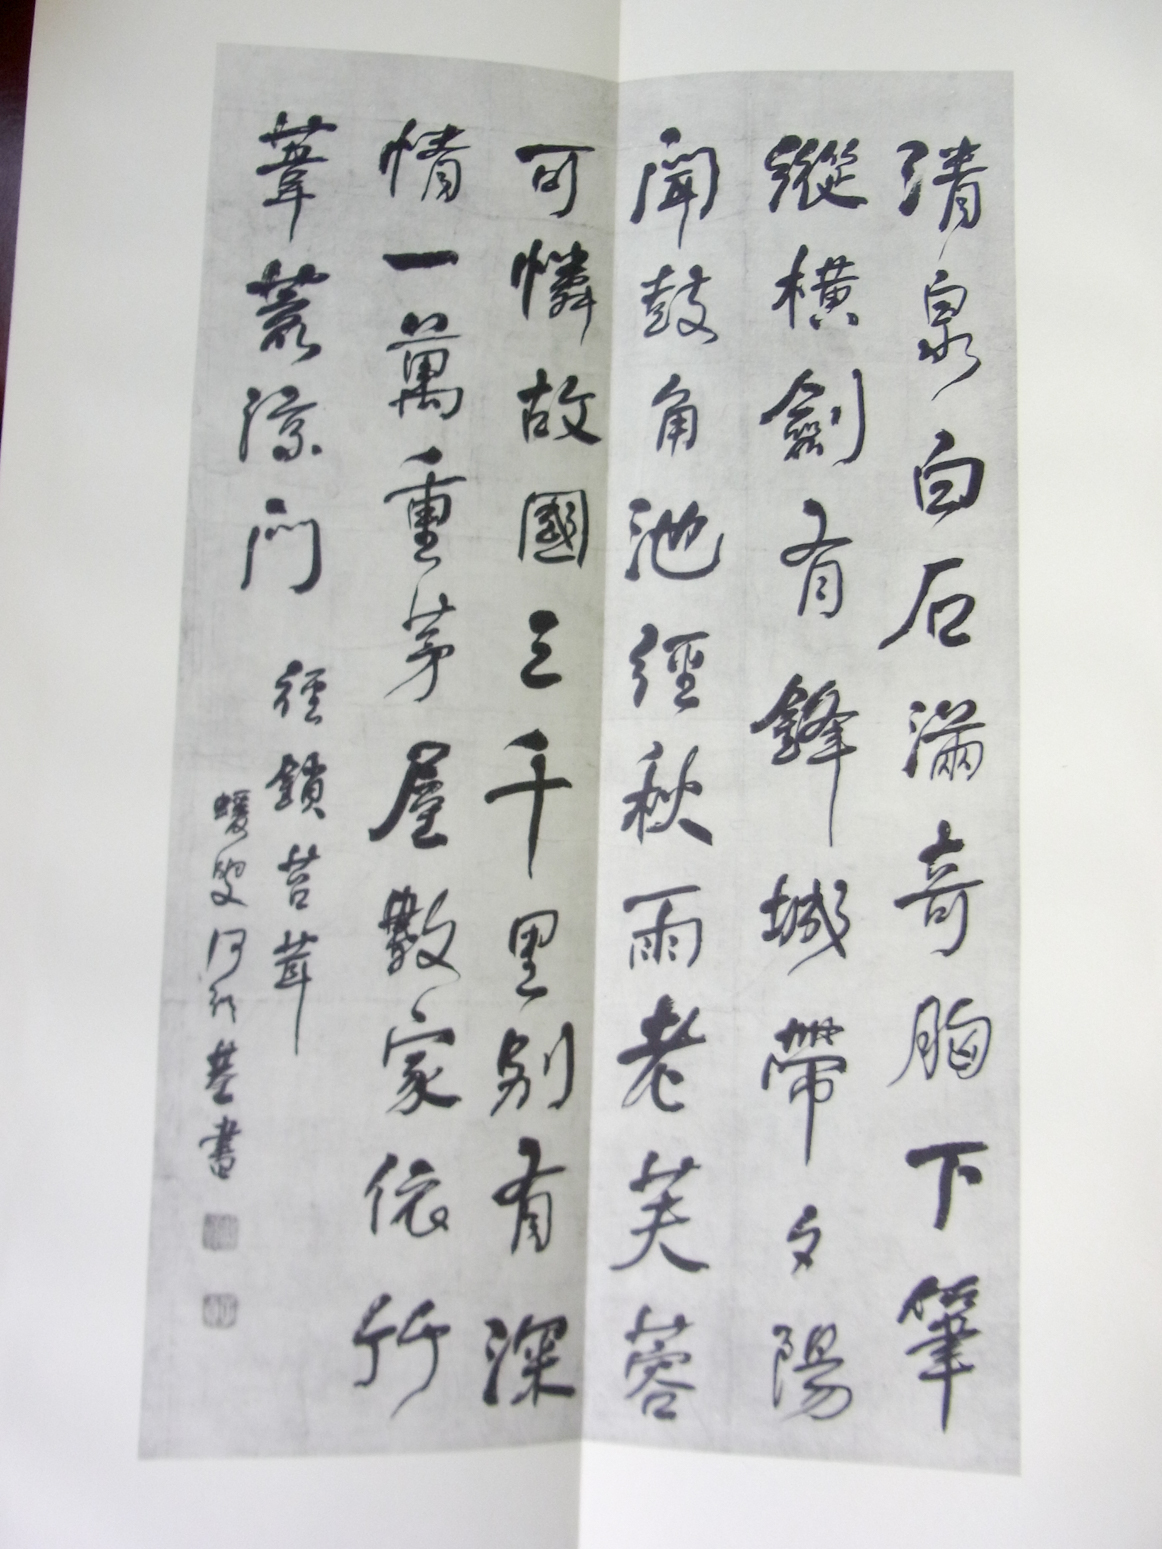 清泉白石滿奇胸下筆
縱橫劍有鋒城帶夕陽
聞鼓角池經秋雨老芙蓉
可憐故國三千里別有深
情一萬重茅屋數家依竹
葦叢涼門 徑鎖苔茸
蝯叟何紹基書